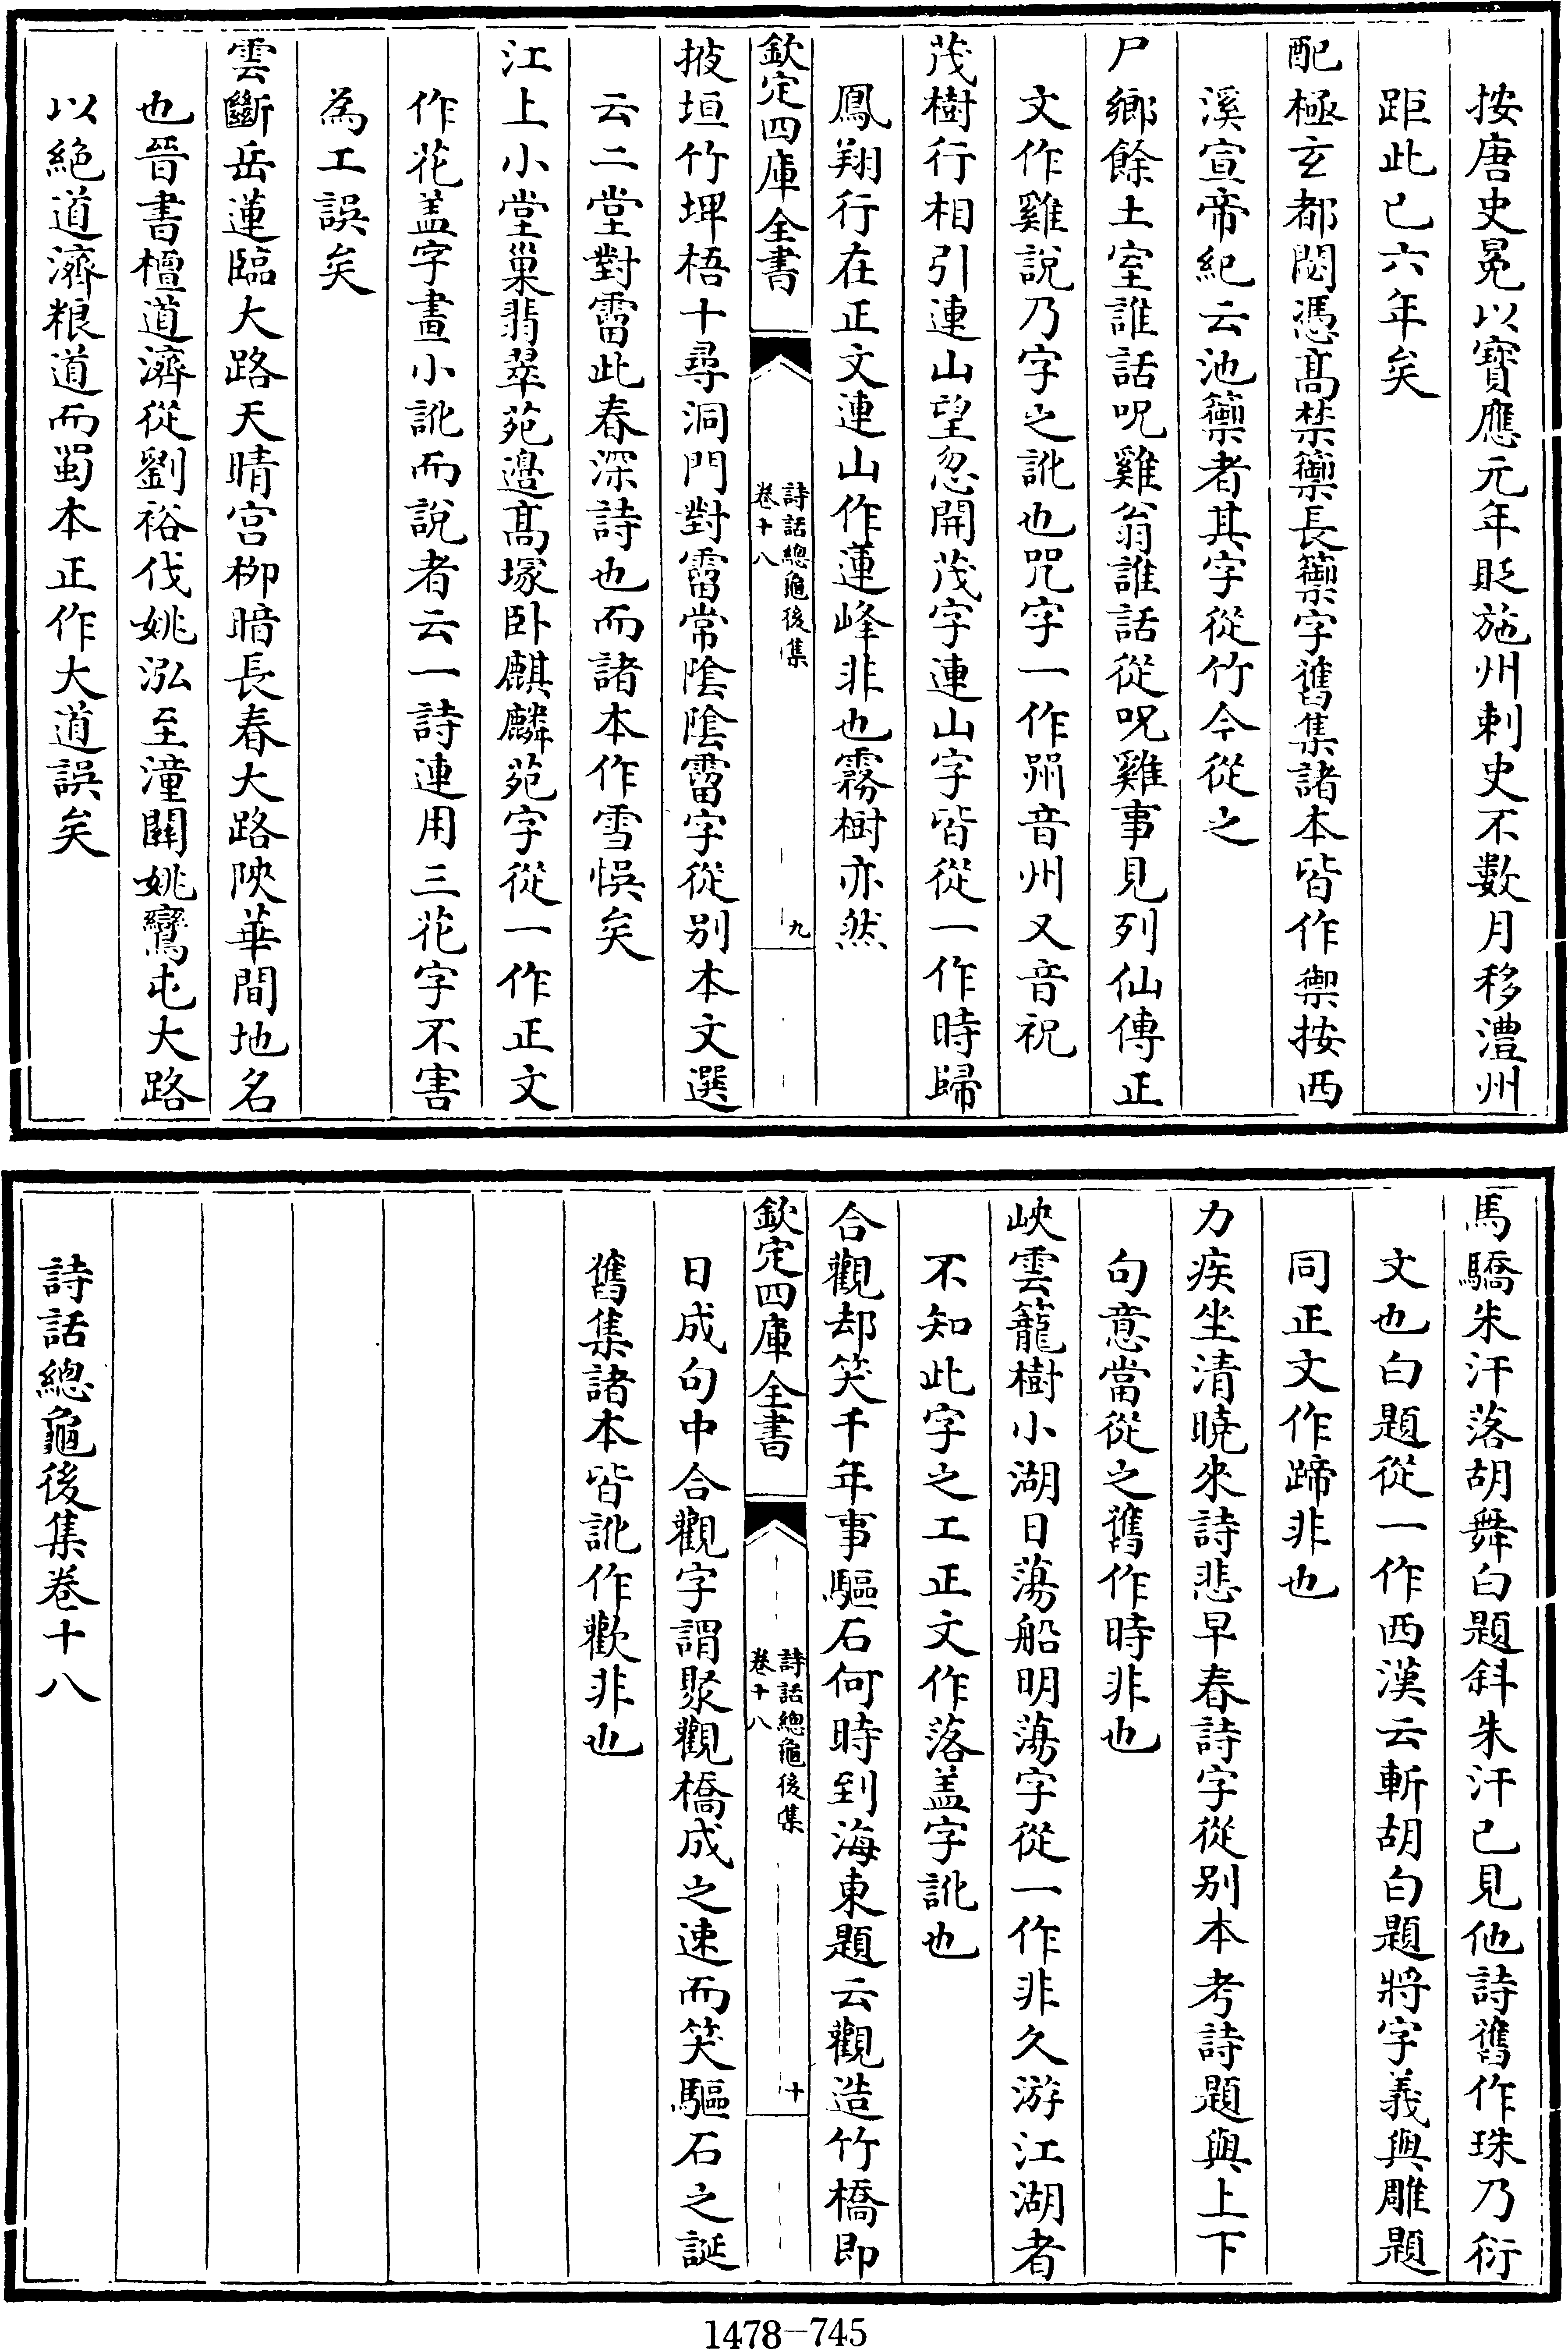 按唐史冕以寶應元年貶施州刺史不數月移澧州
距此已六年矣
配極玄都閟憑髙禁籞長籞字舊集諸本皆作禦按西
溪宣帝紀云池籞者其字從竹今從之
尸鄉餘土室誰話呪雞翁誰話從呪雞事見列仙傳正
文作雞說乃字之訛也咒字一作喌音州又音祝
茂樹行相引連山望忽開茂字連山字皆從一作時歸
鳳翔行在正文連山作蓮峰非也霧樹亦然
欽定四庫全書
詩話總龜後集
卷十八
九
掖垣竹埤梧十尋洞門對霤常陰陰霤字從别本文選
云二堂對霤此春深詩也而諸本作雪悞矣
江上小堂巢翡翠苑邉髙塚卧麒麟苑字從一作正文
作花盖字畫小訛而說者云一詩連用三花字不害
為工誤矣
雲斷岳蓮臨大路天晴宫栁暗長春大路陜華間地名
也晉書檀道濟從劉裕伐姚泓至潼闗姚鸞屯大路
以絶道濟粮道而蜀本正作大道誤矣
馬驕朱汗落胡舞白題斜朱汗已見他詩舊作珠乃衍
文也白題從一作西漢云斬胡白題將字義與雕題
同正文作蹄非也
力疾坐清曉來詩悲早春詩字從别本考詩題與上下
句意當從之舊作時非也
峽雲籠樹小湖日蕩船明蕩字從一作非久游江湖者
不知此字之工正文作落盖字訛也
合觀却笑千年事驅石何時到海東題云觀造竹橋即
欽定四庫全書
詩話總龜後集
卷十八
十
日成句中合觀字謂聚觀橋成之速而笑驅石之誕
舊集諸本皆訛作歡非也
詩話總龜後集卷十八
1478-745